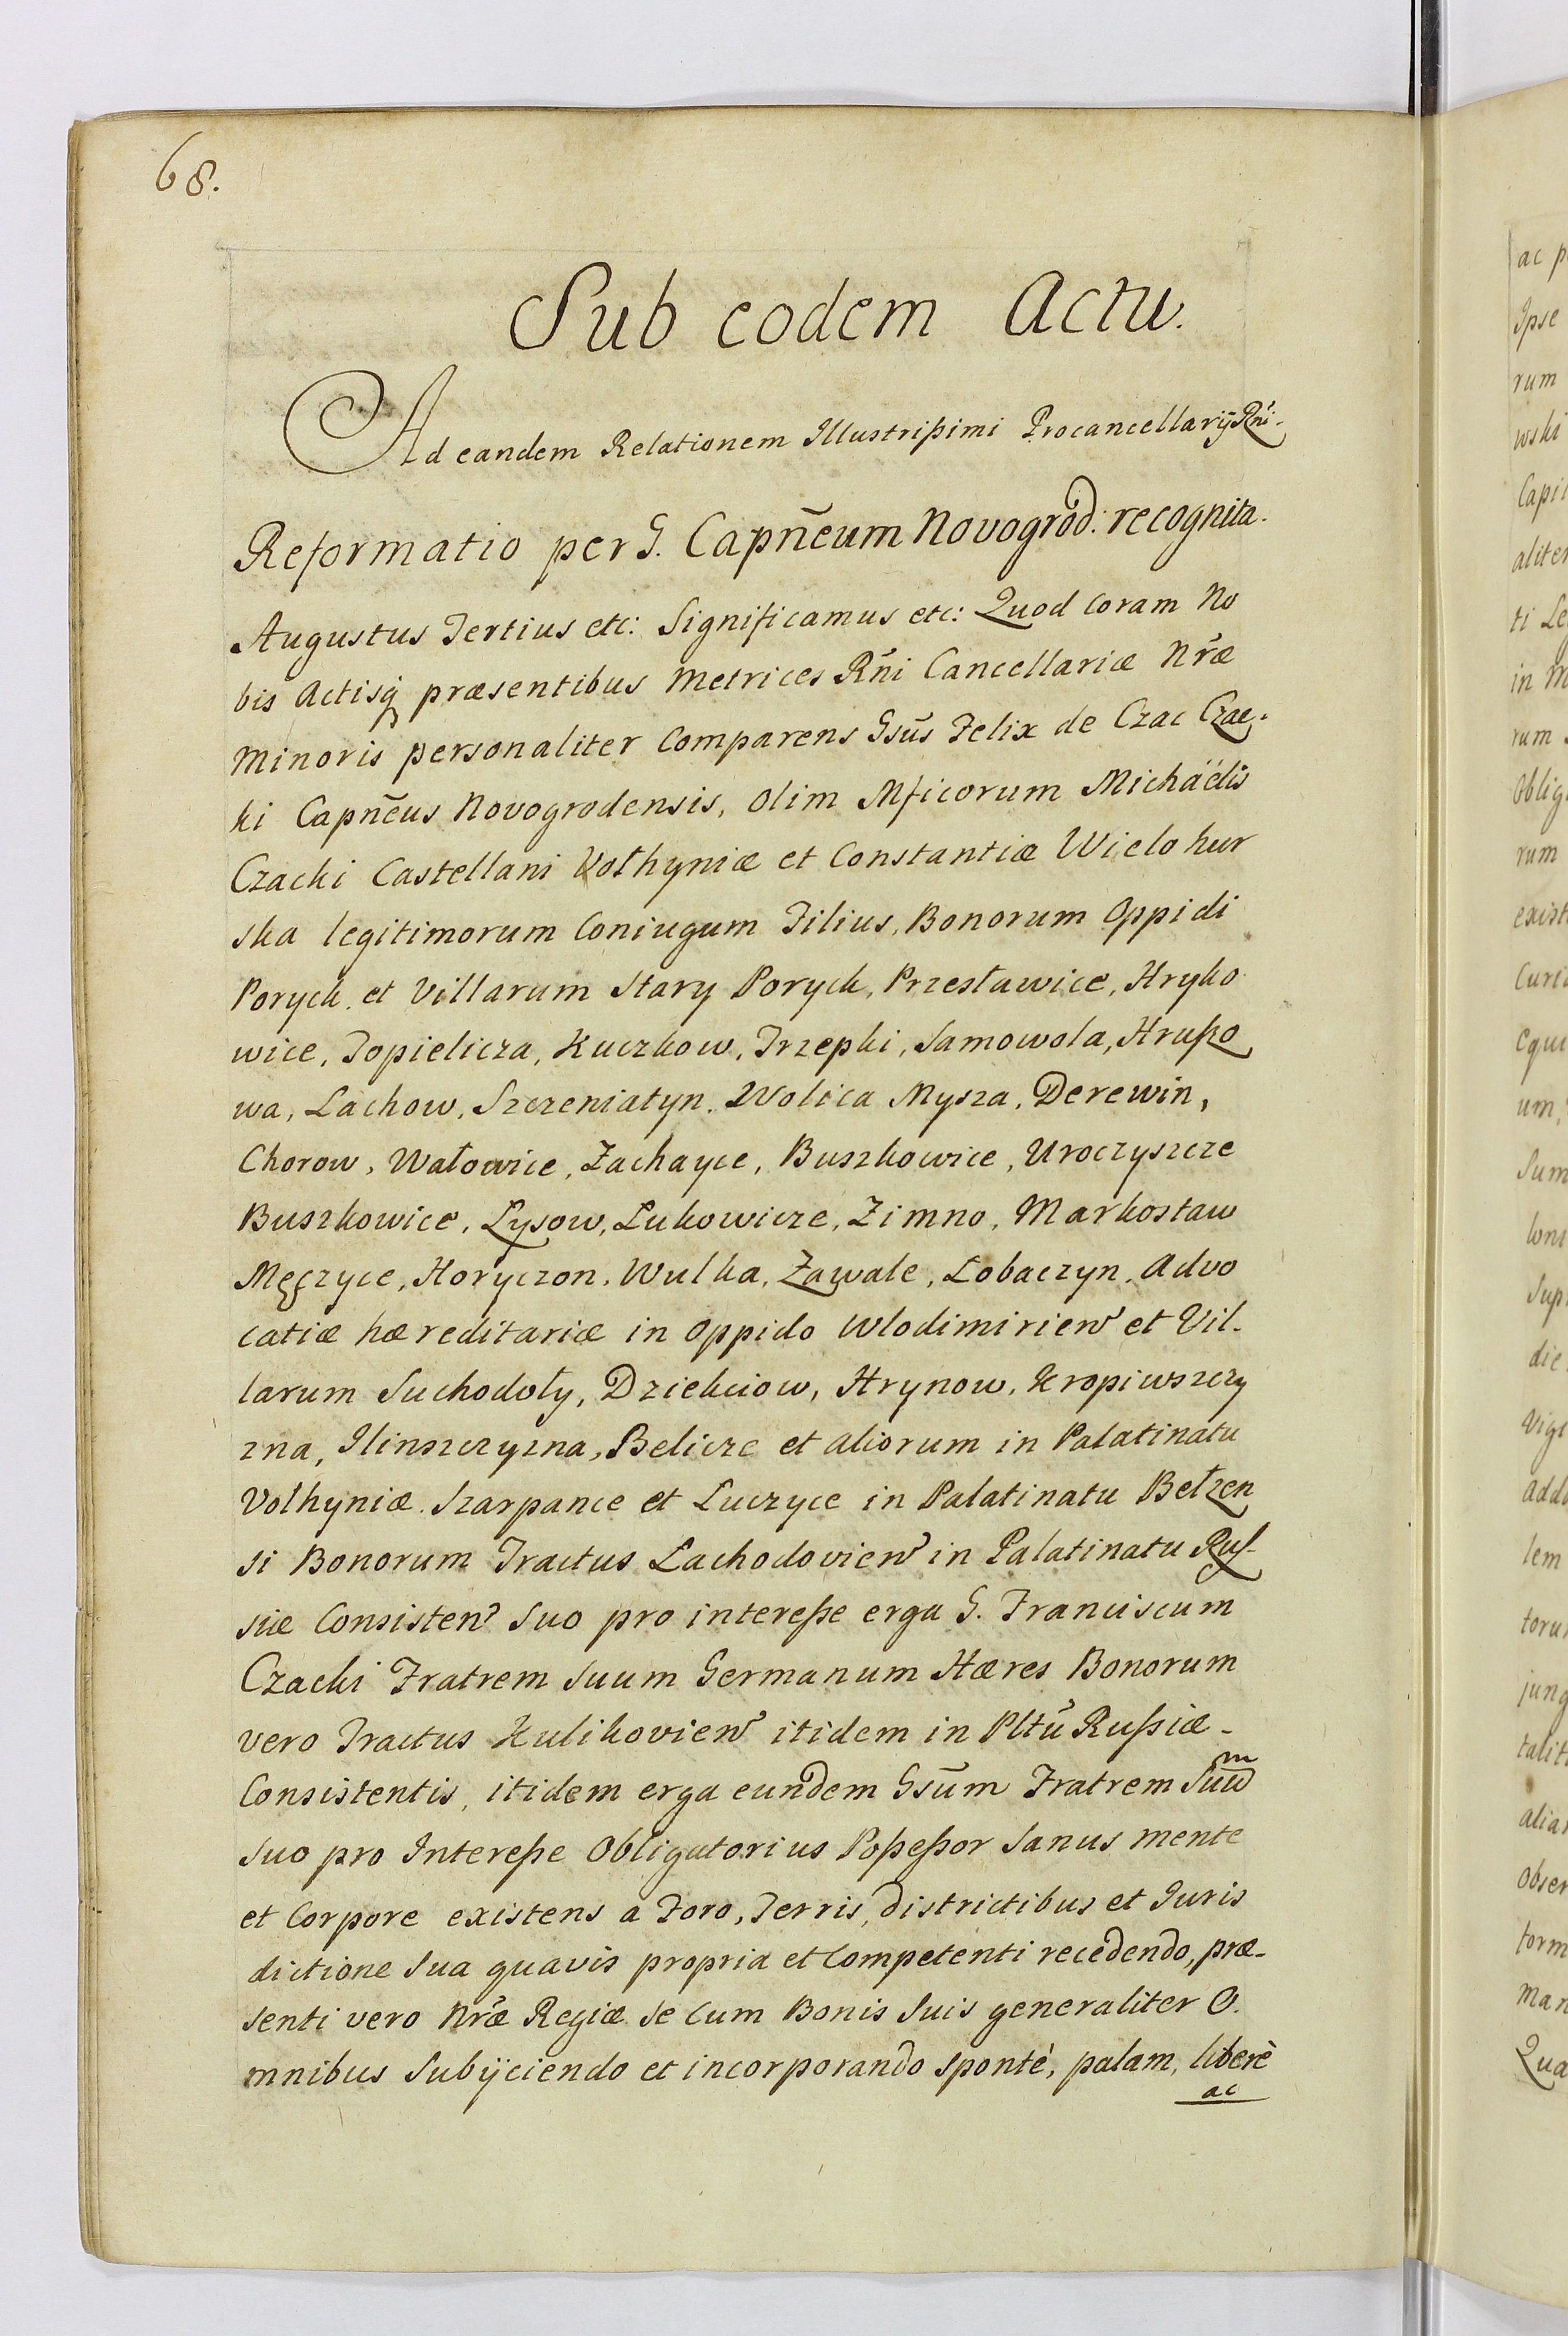 68.
Sub eodem Actu.
Ad eandem Relationem Illustrißimi Procancellarij Rñi.
Reformatio per G. Capñeum Novogrod: recognita.
Augustus Tertius etc: Significamus etc: Quod Coram No
bis Actisq̃ præsentibus Metrices Rñi Cancellariæ Nr̃æ
Minoris personaliter Comparens Gsũs Felix de Czac Czac-
ki Capnẽus Novogrodensis, olim Mficorum Michäelis
Czacki Castellani Vołhyniæ et Constantiæ Wielohur
ska legitimorum Coniugum Filius, Bonorum Oppidi
Poryck. et Villarum Stary Poryck, Przesławice, Hryko
wice, Topielicza, Kuczkow, Trzepki, Samowola, Hrußo
wa, Lachow, Szczeniatyn. Wolica Mysza, Derewin,
Chorow, Wałowice, Zachayce, Buszkowice, Uroczyszcze
Buszkowice, Łysow, Lukowicze, Zimno, Markostaw
Męczyce, Horyczon, Wulka, Zawale, Łobaczyn. Advo
catiæ hæreditariæ in Oppido Wlodimirien̄ et Vil-
larum Suchodoły, Dziekciow, Hrynow, Kropiwszczy
zna, Ilinszczyzna, Belicze et aliorum in Palatinatu
Vołhyniæ. Szarpance et Luczyce in Palatinatu Bełzen
si Bonorum Tractus Lachodovien̄ in Palatinatu Rus-
siæ Consisten̄ Suo pro intereße erga G. Franciscum
Czacki Fratrem Suum Germanum Hæres Bonorum
vero Tractus Kulikovien̄ itidem in Pltũ Rußiæ-
Consistentis, itidem erga eundem Gsũm Fratrem Suũm
Suo pro Intereße Obligatorius Poßeßor Sanus mente
et Corpore existens a Foro, Terris, districtibus et Iuris
dictione Sua quavis propria et Competenti recedendo, præ-
senti vero Nr̃æ Regiæ se Cum Bonis Suis generaliter O.
mnibus Subijciendo et incorporando sponté, palam, liberè
ac